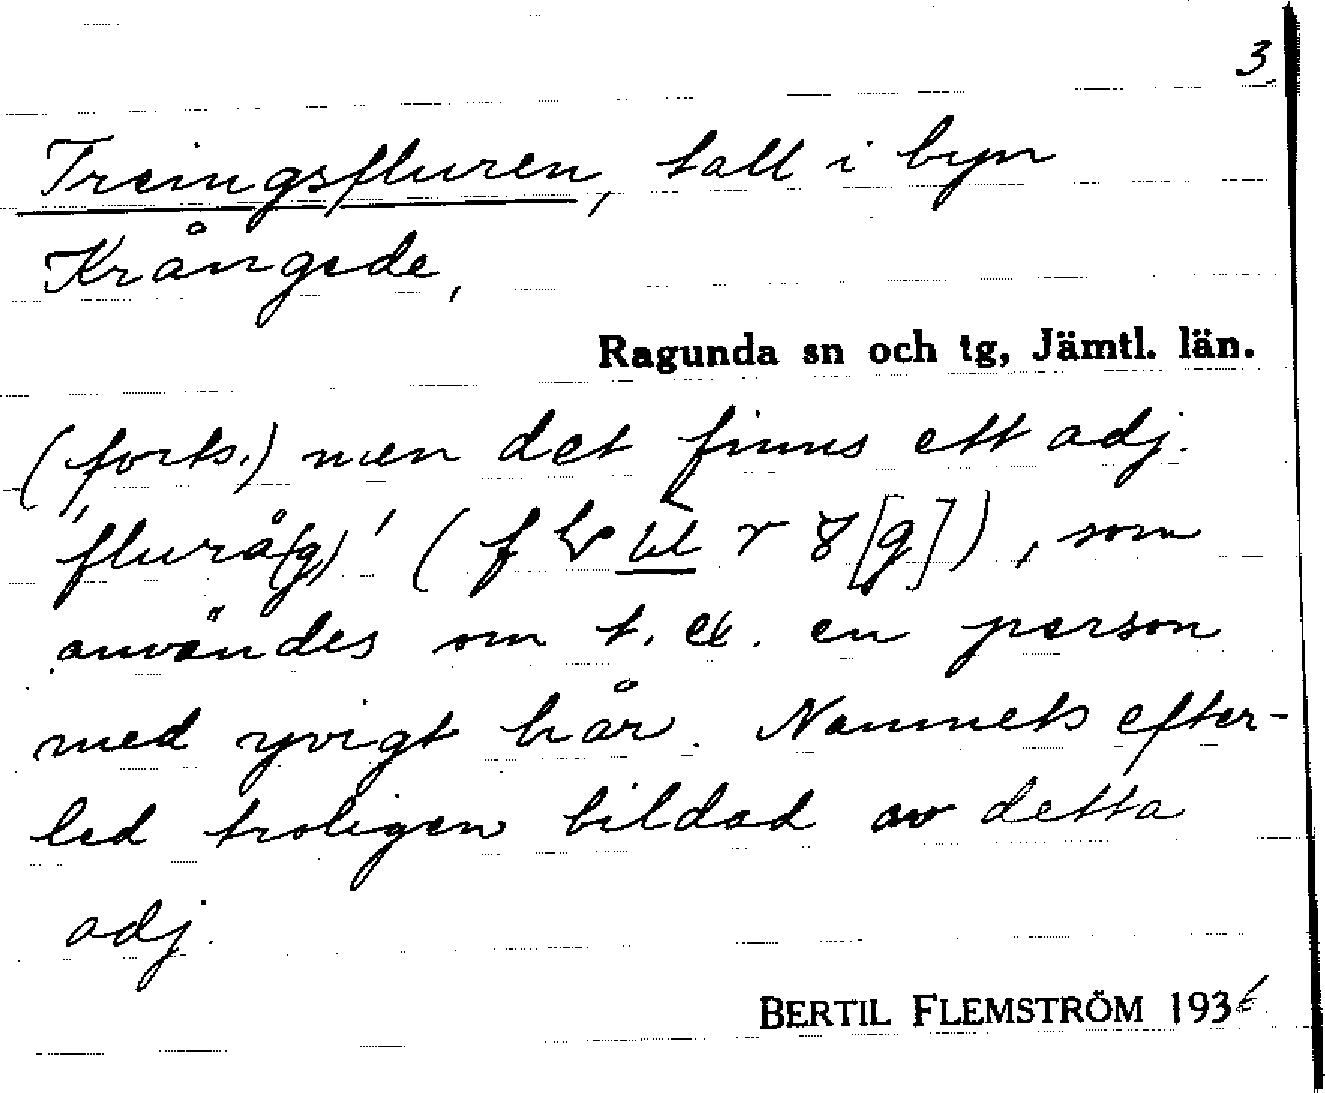 3.
Treingsfluren, tall i byn
Krångede,
Ragunda sn och tg, Jämtl. län.
(forts.) men det finns ett adj.
'flurå(g)' ( som
användes om t. ex. en person
med yvigt hår. Namnets efter-
led troligen bildad av detta
adj.
BERTIL FLEMSTRÖM 1936